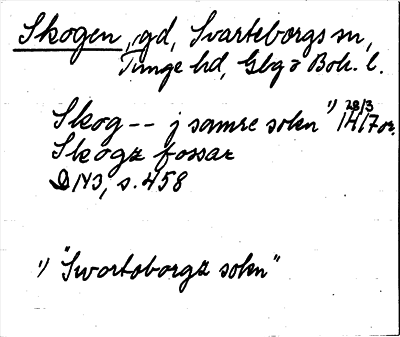 Skogen, gd, Svarteborgs sn,
Tunge hd, Gbg o Boh. l.
Skog -- j samre sokn 1) 28/3
Skogz fossar
DN3, s. 458
1) "Swartoborgz sokn"